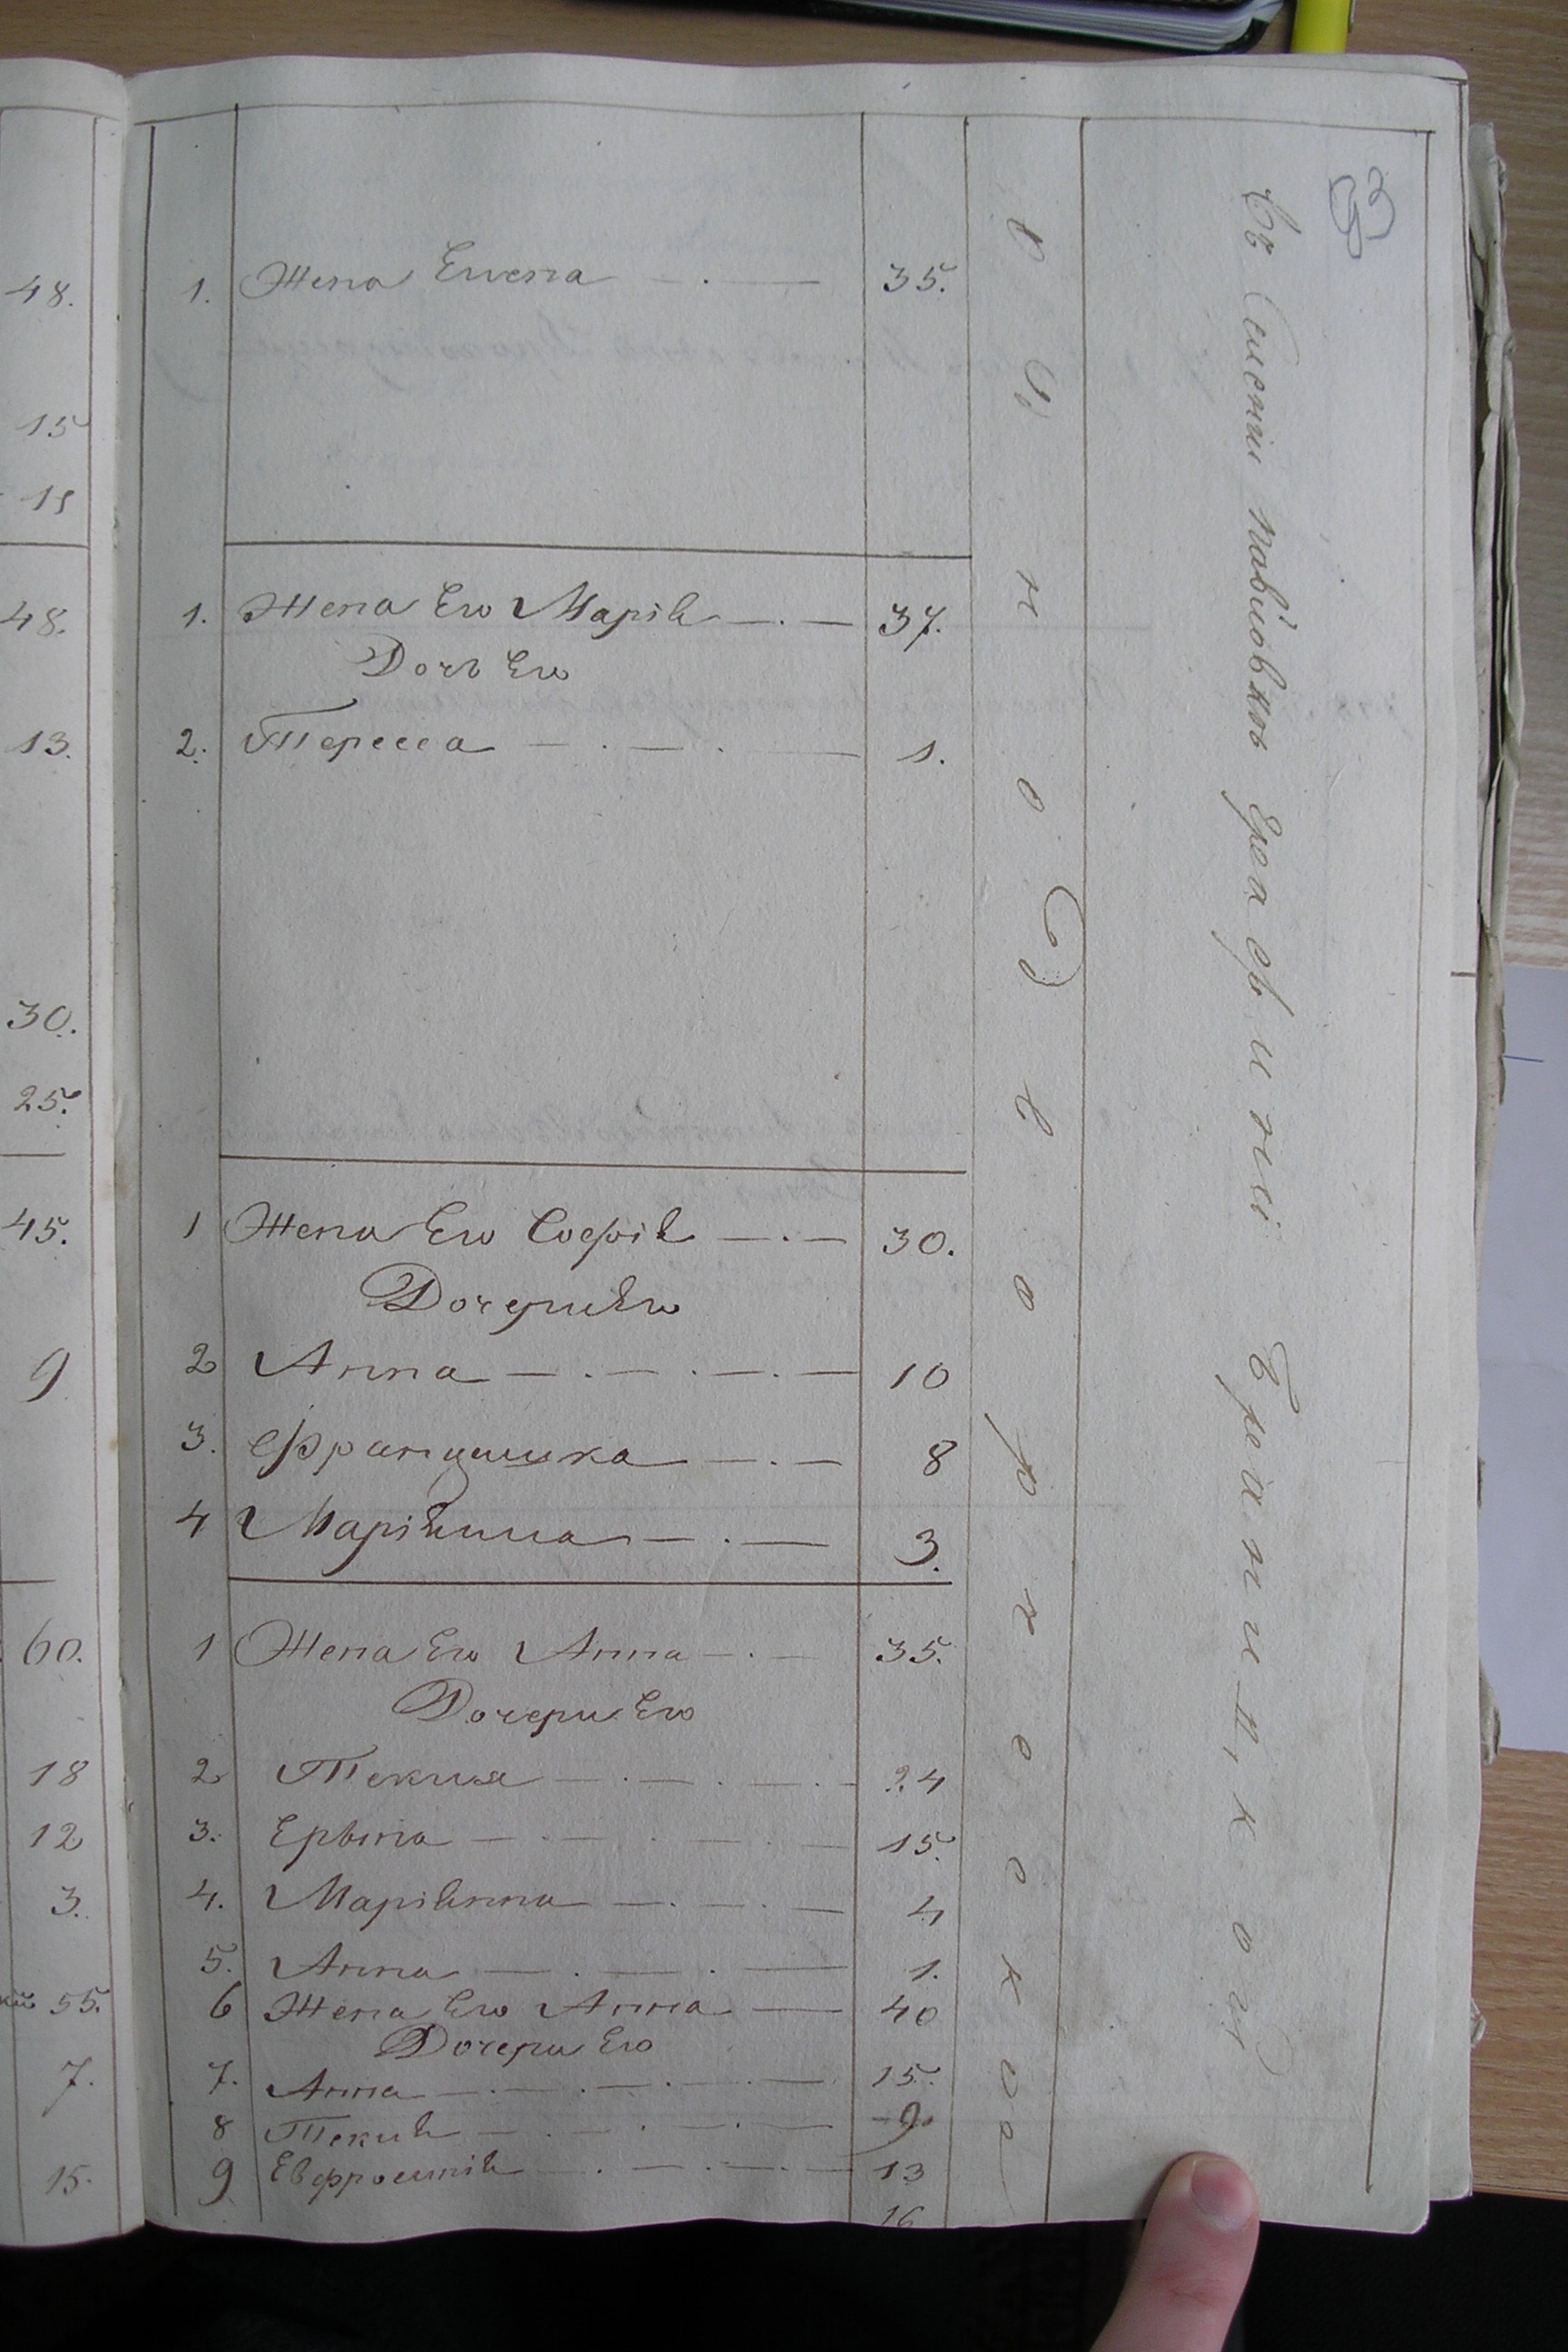 93
48.
15
15
48.
13.
30.
25.
45.
9
60.
18
12
3.
55.
7.
15.
1. Жена Елена 35.
1. Жена Его Марія 37.
Дочь Его
2. Тересса 1.
1 Жена Его Софія 30.
Дочери Его
2 Анна 10
3. Францишка 8
4 Маріянна 3.
1 Жена Его Анна 35.
Дочери Его
2 Текля 24
3. Ерына 15.
4. Маріянна 4
5. Анна 1.
6 Жена Его Анна 40
Дочери Его
7. Анна 15.
8 Текля 9.
9 Евфросинія 13
16